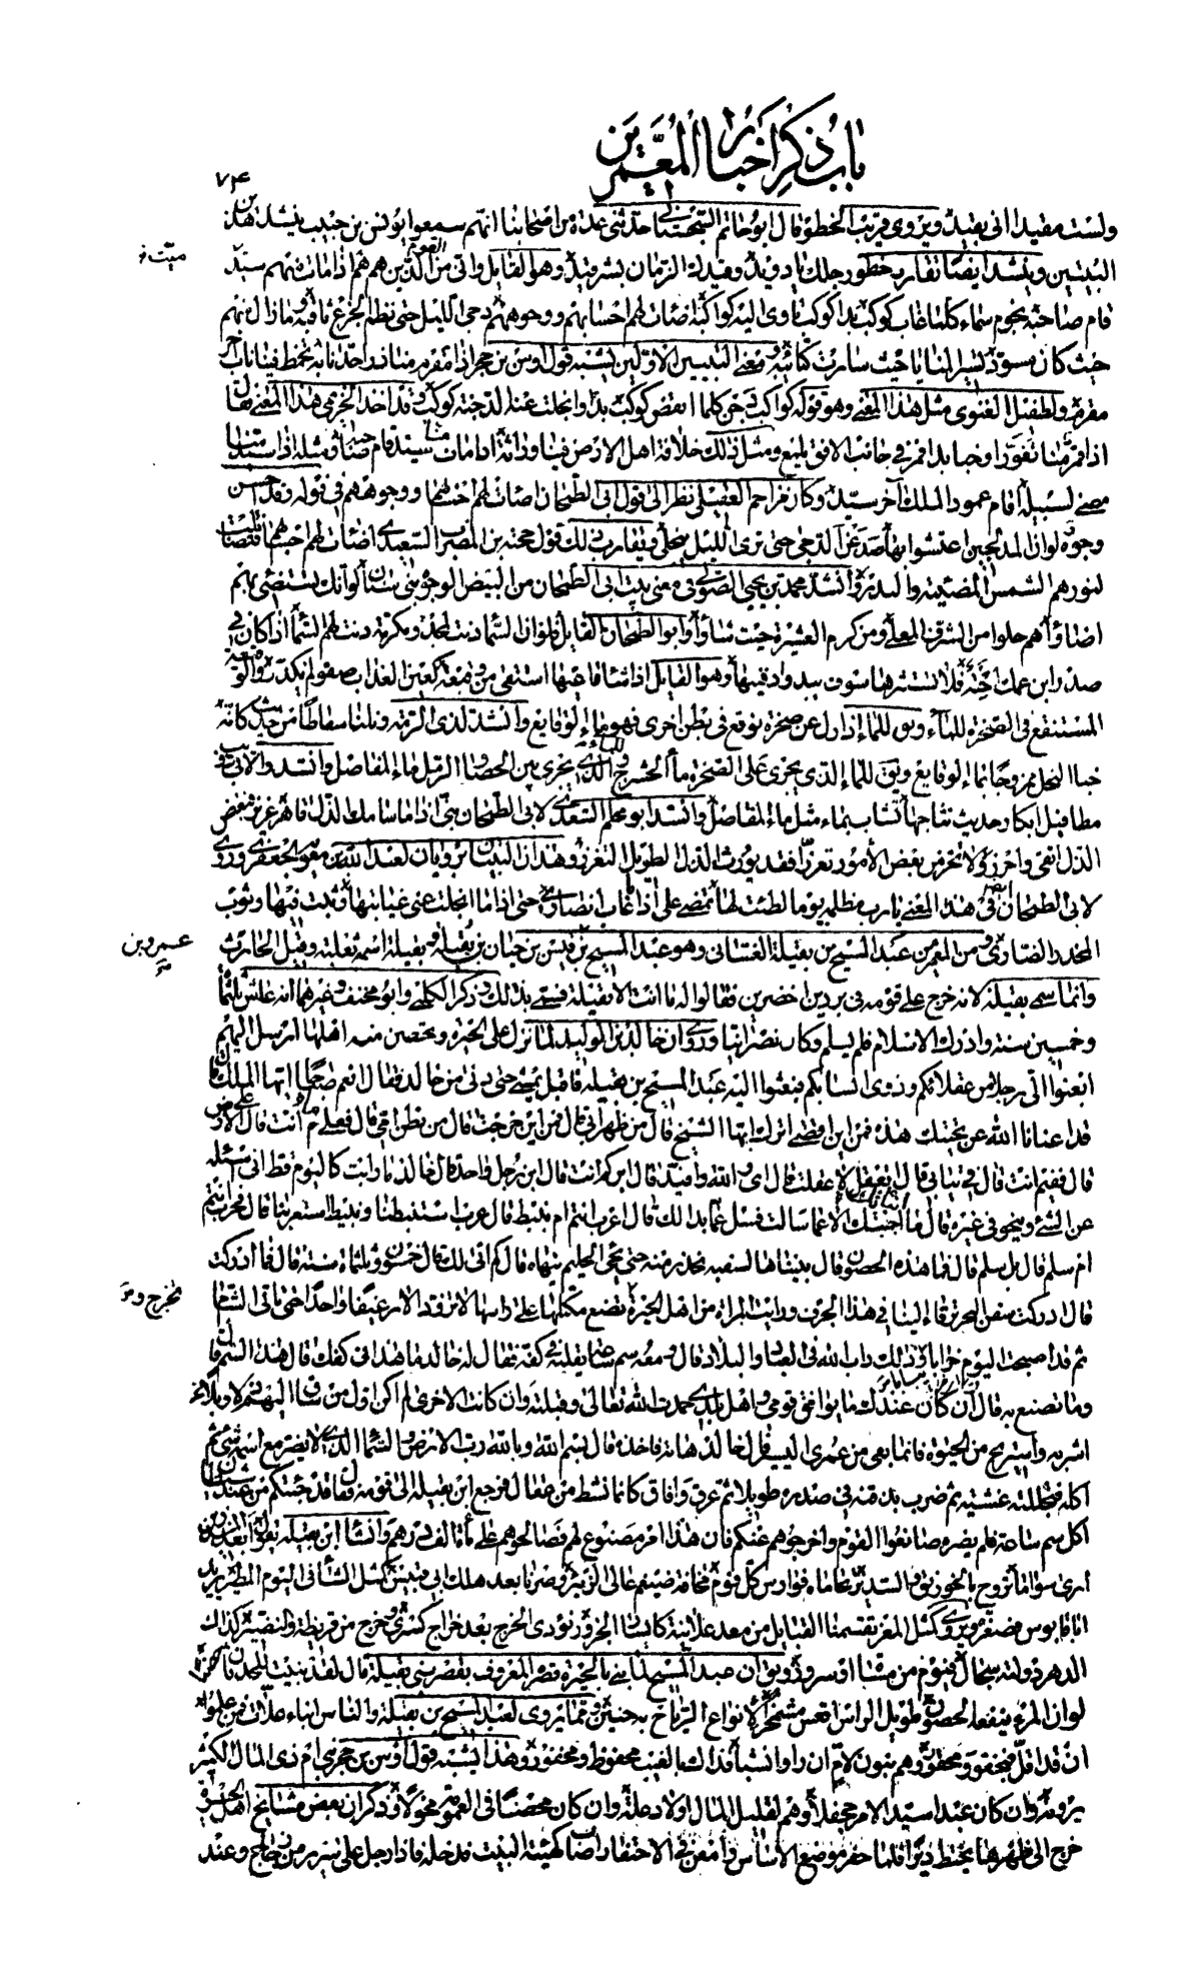 باب ذكر اخبار المعمرين
٧٤
ولست مقيدا انى بقيد ويروى قريب الخطو قال ابو حاتم السجستانى حدثنى عدة من اصحابنا انهم سمعوا يونس بن حبيب ينشد هذين
البيتين وينشد ايضا تقارب خطو رجلك يا دويد وقيدك الزمان بشر قيد وهو القايل وانى من القوم الذين هم هم اذا مات منهم سيد
ميت
قام صاحبه نجوم سماء كلما غاب كوكب بدا كوكب تأوى اليه كواكبه اضاءت لهم احسابهم ووجوههم دجى الليل حتى نظم الجزع ثاقبه وما زال منهم
حيث كان مسود تسير المنايا حيث سارت كتائبه ومعنى البيتين الاولين يشبه قول اوس بن حجر اذا مقرم منا ذرا حد نابه تخمط فينا ناب آخر
مقرم ولطفيل الغنوى مثل هذا المعنى وهو قوله كواكب دجن كلما انقض كوكب بدا وانجلت عنه الدجنة كوكب وقد اخذ الخريمى هذا المعنى فقال
اذا قمر منا تغور او خبا بدا قمر فى جانب الافق يلمع ومثل ذلك خلافة اهل الارض فينا وراثة اذا مات منا سيد قام صاحبه ومثله اذا سيد منا
مضى لسبيله اقام عمود الملك آخر سيد وكان مزاحم العقيلى نظر الى قول ابى الطمحان اضاءت لهم احسابهم ووجوههم فى قوله وقد احسن
وجوه لو ان المدلجين اعتشوا بها صدعن الدجى حتى ترى الليل ينجلى ويقارب ذلك قول حجية بن المضرب السعدى اضاءت لهم احسابهم فتضاءلت
لنورهم الشمس المضيئة والبدر وانشد محمد بن يحيى الصولى فى معنى بيت ابى الطمحان من البيض الوجوه بنى سنان لو انك تستضىء بهم
اضاؤا هم حلوا من الشرف المعلى ومن كرم العشيرة حيث شاؤا وابو الطمحان القايل فلو ان السماء دنت لمجد ومكرمة دنت لهم السماء اذا كان فى
صدر ابن عمك احنة فلا تستثرها سوف يبدو دفينها وهو القايل اذا شاء راعيها استقى من وقيعة كعين الغراب صفوها لم يكدر والوقيعة
المستنقع فى الصخرة للماء ويق للماء اذا زل عن صخرة فوقع فى بطن اخرى فهو ماء الوقايع وانشد لذى الرمة ونلنا سقاطا من حديث كانه
جنا النحل ممزوجا بماء الوقايع ويق للماء الذى يجرى على الصخرة ماء الحشرج وللماء الذى يجرى بين الحصا والرمل ماء المفاصل وانشد والابى ذؤيب
مطافيل ابكار حديث نتاجها تشاب بماء مثل ماء المفاصل وانشد ابو محلم السعدى لابى الطمحان بنى اذا ما سامك الذل قاهر عزيز فبعض
الذل اتقى واحرز ولا تحرمن بعض الامور تعززا فقد يورث الذل الطويل التعزز وهذان البيتان يرويان لعبد الله بن معوية الجعفرى وروى
لابى الطمحان ايضا فى هذا المعنى يا رب مظلمة يوما لطئت لها تمضى على اذا ما غاب انصارى حتى اذا ما انجلت عنى غيابتها وثبت فيها وثوب
المخدر الضارى ومن المعمرين عبد المسيح بن بقيلة الغسانى وهو عبد المسيح بن عمرو بن قيس بن حيان بن بقيلة وبقيلة اسمه ثعلبة وقيل الحارث
عمرو بن
وانما سمى بقيلة لانه خرج على قومه فى بردين اخضرين فقالوا له ما انت الا بقيلة فسمى بذلك وذكر الكلبى وابو مخنف وغيرهما انه عاش ثلثمائة
وخمسين سنة وادرك الاسلام فلم يسلم وكان نصرانيا وروى ان خالد بن الوليد لما نزل على الحيرة وتحصن منه اهلها ارسل اليهم
ابعثوا الى رجلا من عقلائكم وذوى انسابكم فبعثوا اليه عبد المسيح بن بقيلة فاقبل يمشى حتى دنى من خالد فقال انعم صباحا ايها الملك قال
قد اغنانا الله عن تحيتك هذه فمن اين اقصى اثرك ايها الشيخ قال من ظهر ابى قال فمن اين خرجت قال من بطن امى قال فعلى م انت قال على الارض
قال ففيم انت قال فى ثيابى قال اتعقل لا عقلت قال اى والله واقيد قال ابن كم انت قال ابن رجل واحد قال خالد ما رايت كاليوم قط انى اسئله
عن الشىء وينحو فى غيره قال ما اجبتك الا عما سالت فسل عما بدا لك قال اعرب انتم ام نبيط قال عرب استنبطنا ونبيط استعربنا قال فحرب انتم
ام سلم قال بل سلم قال فما هذه الحصون قال بنيناها للسفيه نحذر منه حتى يجىء الحليم ينهاه قال كم اتى لك قال خمسون وثلثمائة سنة قال فما ادركت
قال ادركت سفن البحر ترفا الينا فى هذا الجرف ورايت المراة من اهل الحيرة تضع مكتلها على راسها لا تزود الا رغيفا واحدا حتى تاتى الشام
تخرج و
ثم قد اصبحت اليوم خرابا وذلك داب الله فى العباد والبلاد قال ومعه سم ساعة يقلبه فى كفه فقال له خالد ما هذا فى كفك قال هذا السم قال
وما تصنع به قال ان كان عندك ما يوافق قومى واهل بلدى حمدت الله تعالى وقبلته وان كانت الاخرى لم اكن اول من ساق اليهم ذلا وبلاء
اشربه واستريح من الحيوة فانما بقى من عمرى اليسير قال خالد هاته فاخذه ثم قال بسم الله وبالله رب الارض والسماء الذى لا يضر مع اسمه شىء ثم
اكله فتجللته غشية ثم ضرب بذقنه فى صدره طويلا ثم عرق وافاق كانما نشط من عقال فرجع ابن بقيلة الى قومه فقال قد جئتكم من عند شيطان
اكل سم ساعة فلم يضره صانعوا القوم واخرجوهم عنكم فان هذا امر مصنوع لهم فصالحوهم على مائة الف درهم وانشا ابن بقيلة يقول ابعد المنذرين
ارى سواما تروح بالخورنق والسدير تحاماه فوارس كل قوم مخافة ضيغم عالى الزئير وصرنا بعد هلك ابى قبيس كمثل الشاء فى اليوم المطير يريد
ابا قابوس فصغره ويروى كمثل المعز تقسمنا القبايل من معد علانية كايسار الجزور نؤدى الخرج بعد خراج كسرى وخرج من قريظة والنضير كذاك
الدهر دولته سجال فيوم من مساة او سرور ويق ان عبد المسيح لما بنى بالحيرة قصره المعروف بقصر بنى بقيلة قال لقد بنيت للحدثان حصنا
لو ان المرء ينفعه الحصون طويل الراس اقعس مشمخرا لانواع الرياح به حنين ومما يروى لعبد المسيح بن بقيلة والناس ابناء علات فمن علموا
ان قد اقل فمجفو ومحقور وهم بنون لام ان راوا نشبا فذاك بالغيب محفوظ ومخفور وهذا يشبه قول اوس بن حجر بنى ام ذى المال الكثير
يرونه وان كان عبدا سيد الامر جحفلا وهم لقليل المال اولاد علة وان كان محضا فى العمومة مخولا وذكر ان بعض مشايخ اهل الحيرة
خرج الى ظهرها يختط ديرا فلما حفر موضع الاساس وامعن فى الاحتفار اصاب كهيئة البيت فدخله فاذا رجل على سرير من زجاج وعند